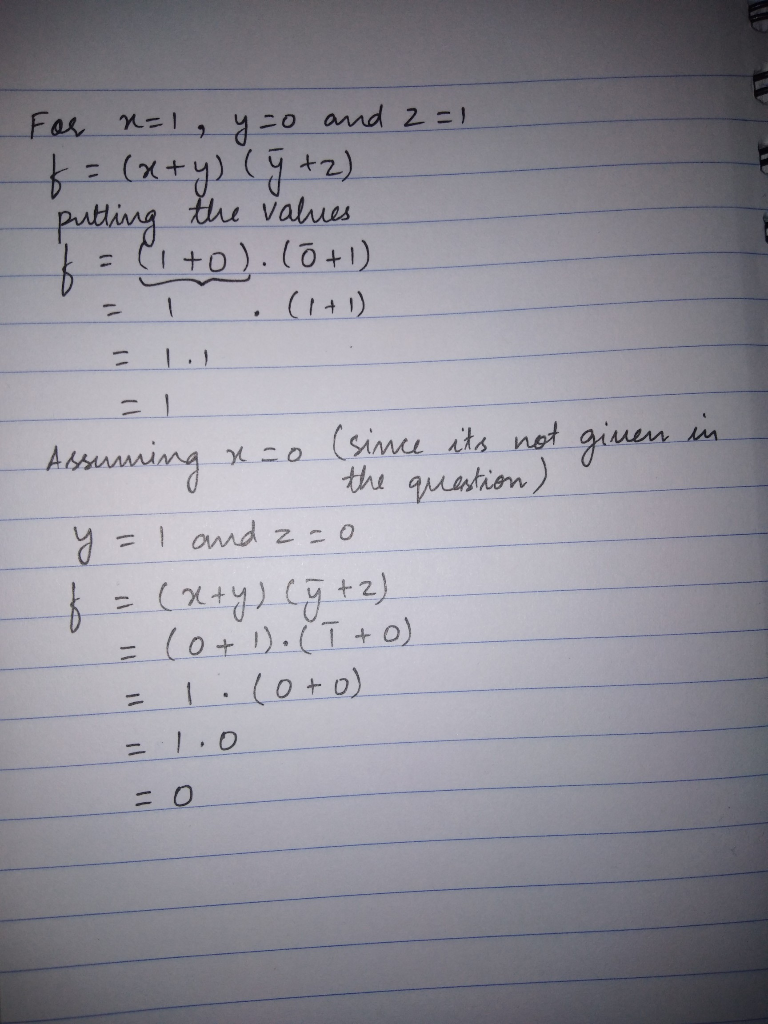 For x=1, y=0 and z=1
f = (x+y) (ȳ+z)
putting the values
f = (1+0).(0̄+1)
= 1 . (1+1)
= 1.1
= 1
Assuming x=0 (since its not given in
the question)
y = 1 and z=0
f = (x+y) (ȳ+z)
= (0+1).(1̄+0)
= 1 . (0+0)
= 1.0
= 0